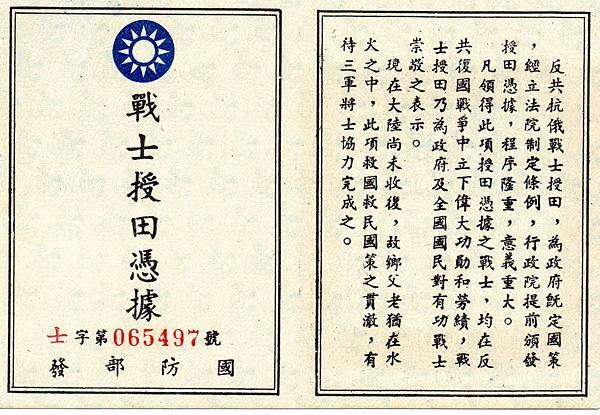 戰士授田憑據
士字第065497號
國防部發
反共抗俄戰士授田，為政府既定國策
，經立法院制定條例，行政院提前頒發
授田憑據，程序隆重，意義重大。
凡領得此項授田憑據之戰士，均在反
共復國戰爭中立下偉大功勛和勞績，戰
士授田乃為政府及全國國民對有功戰士
崇敬之表示。
現在大陸尚未收復，故鄉父老猶在水
火之中，此項救國救民國策之貫澈，有
待三軍將士協力完成之。